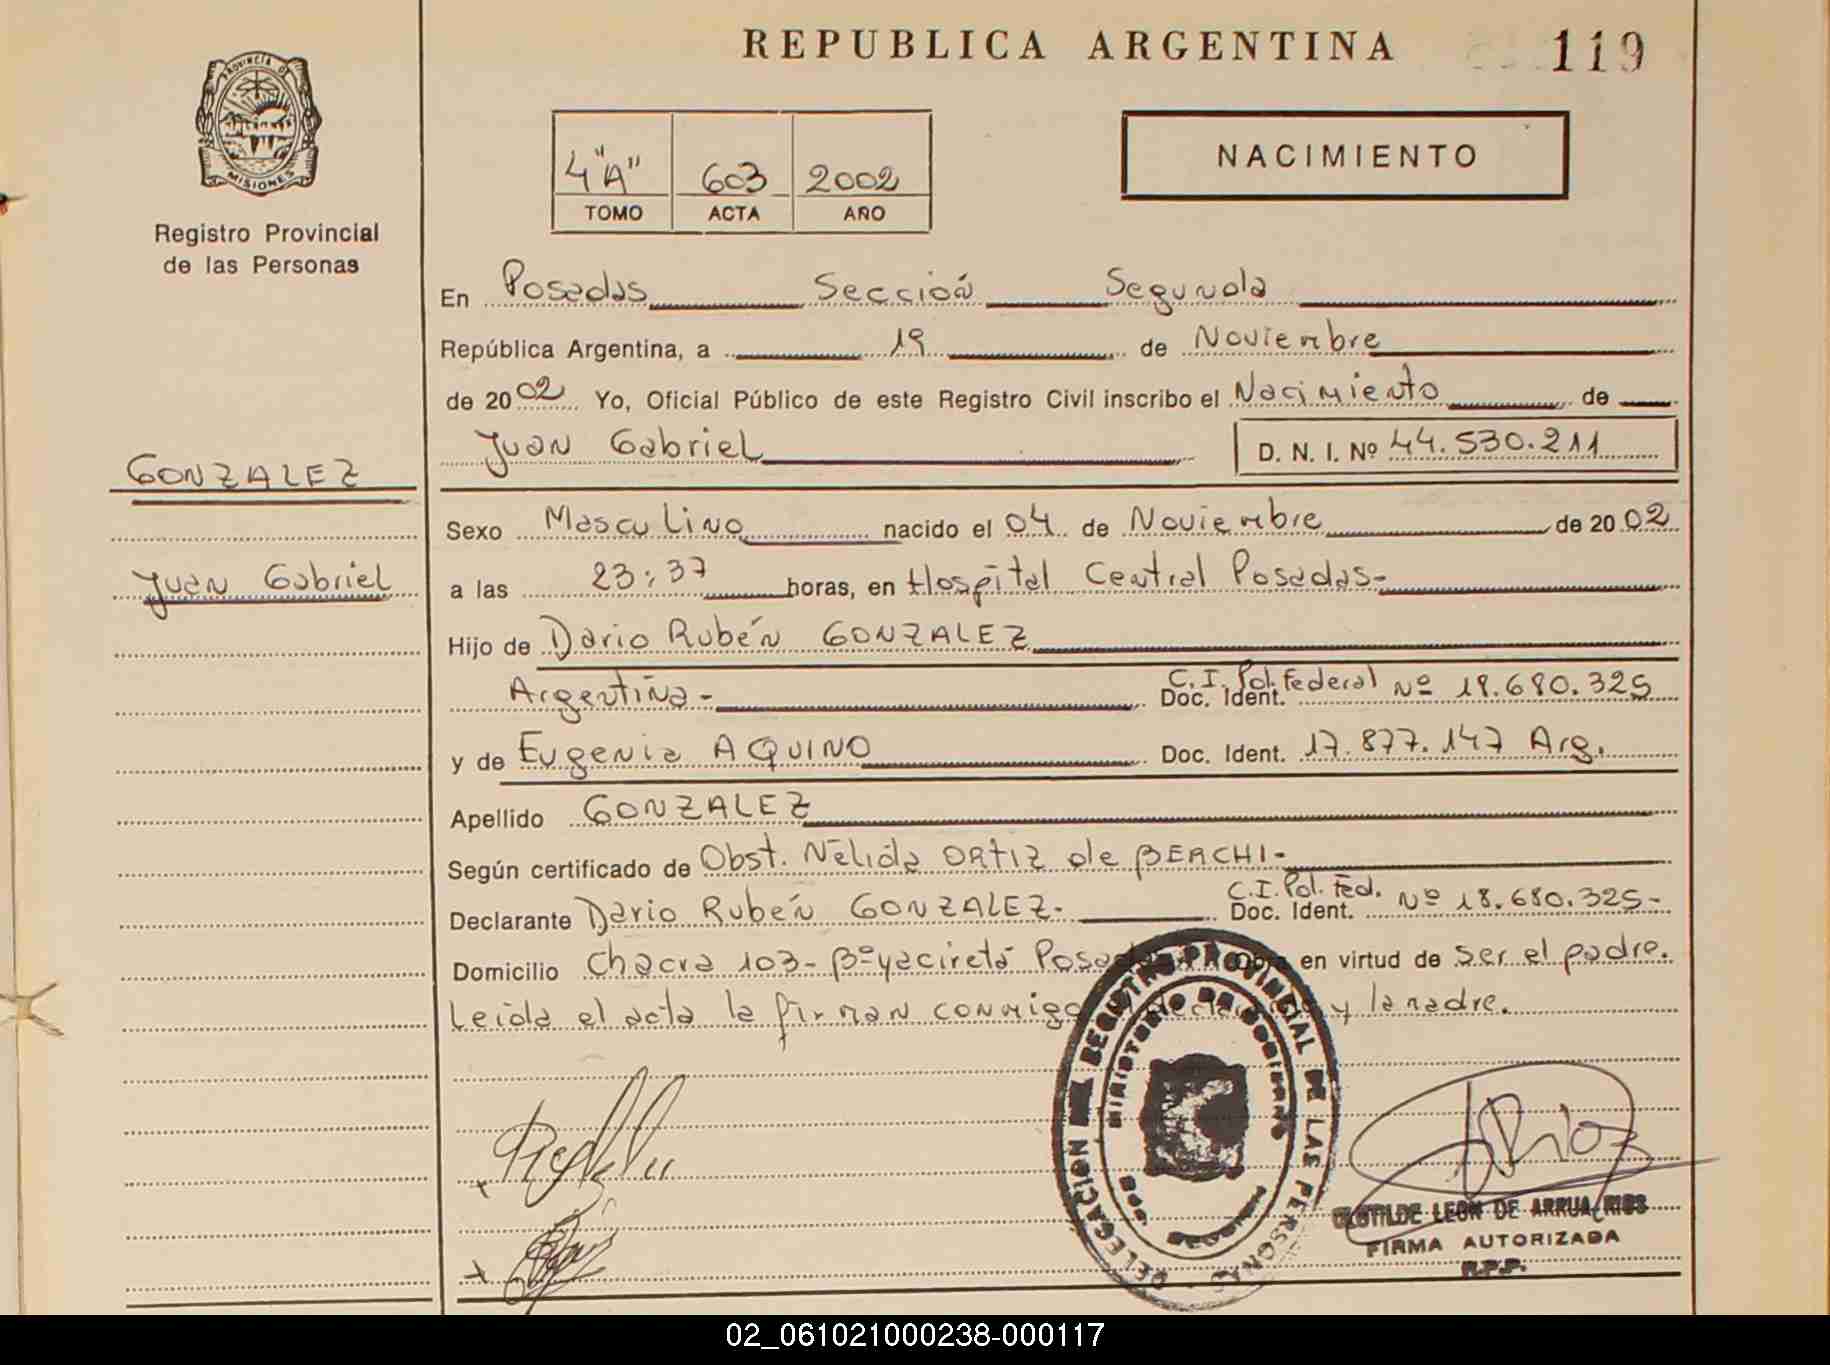 REPUBLICA ARGENTINA
119
PROVINCIA DE
MISIONES
Registro Provincial
de las Personas
4 "A" 603 2002
TOMO ACTA AÑO
NACIMIENTO
En Posadas Sección Segunda
República Argentina, a 19 de Noviembre
de 2002 Yo, Oficial Público de este Registro Civil inscribo el Nacimiento de
Juan Gabriel D. N. I. Nº 44.530.211
GONZALEZ
Juan Gabriel
Sexo Masculino nacido el 04 de Noviembre de 2002
a las 23:37 horas, en Hospital Central Posadas-
Hijo de Dario Rubén GONZALEZ
Argentina- Doc. Ident. C.I. Pol. Federal Nº 18.680.325
y de Eugenia AQUINO Doc. Ident. 17.877.147 Arg.
Apellido GONZALEZ
Según certificado de Obst. Nélida ORTIZ de BERCHI-
Declarante Dario Rubén GONZALEZ- Doc. Ident. C.I. Pol. Fed. Nº 18.680.325-
Domicilio Chacra 103- Bº yacireta Posadas. Obra en virtud de ser el padre.
Leida el acta la firman conmigo el declarante y la madre.
DELEGACION REGISTRO PROVINCIAL DE LAS PERSONAS
MINISTERIO DE GOBIERNO
CLOTILDE LEON DE ARRUA RIOS
FIRMA AUTORIZADA
R.P.P.
02_061021000238-000117